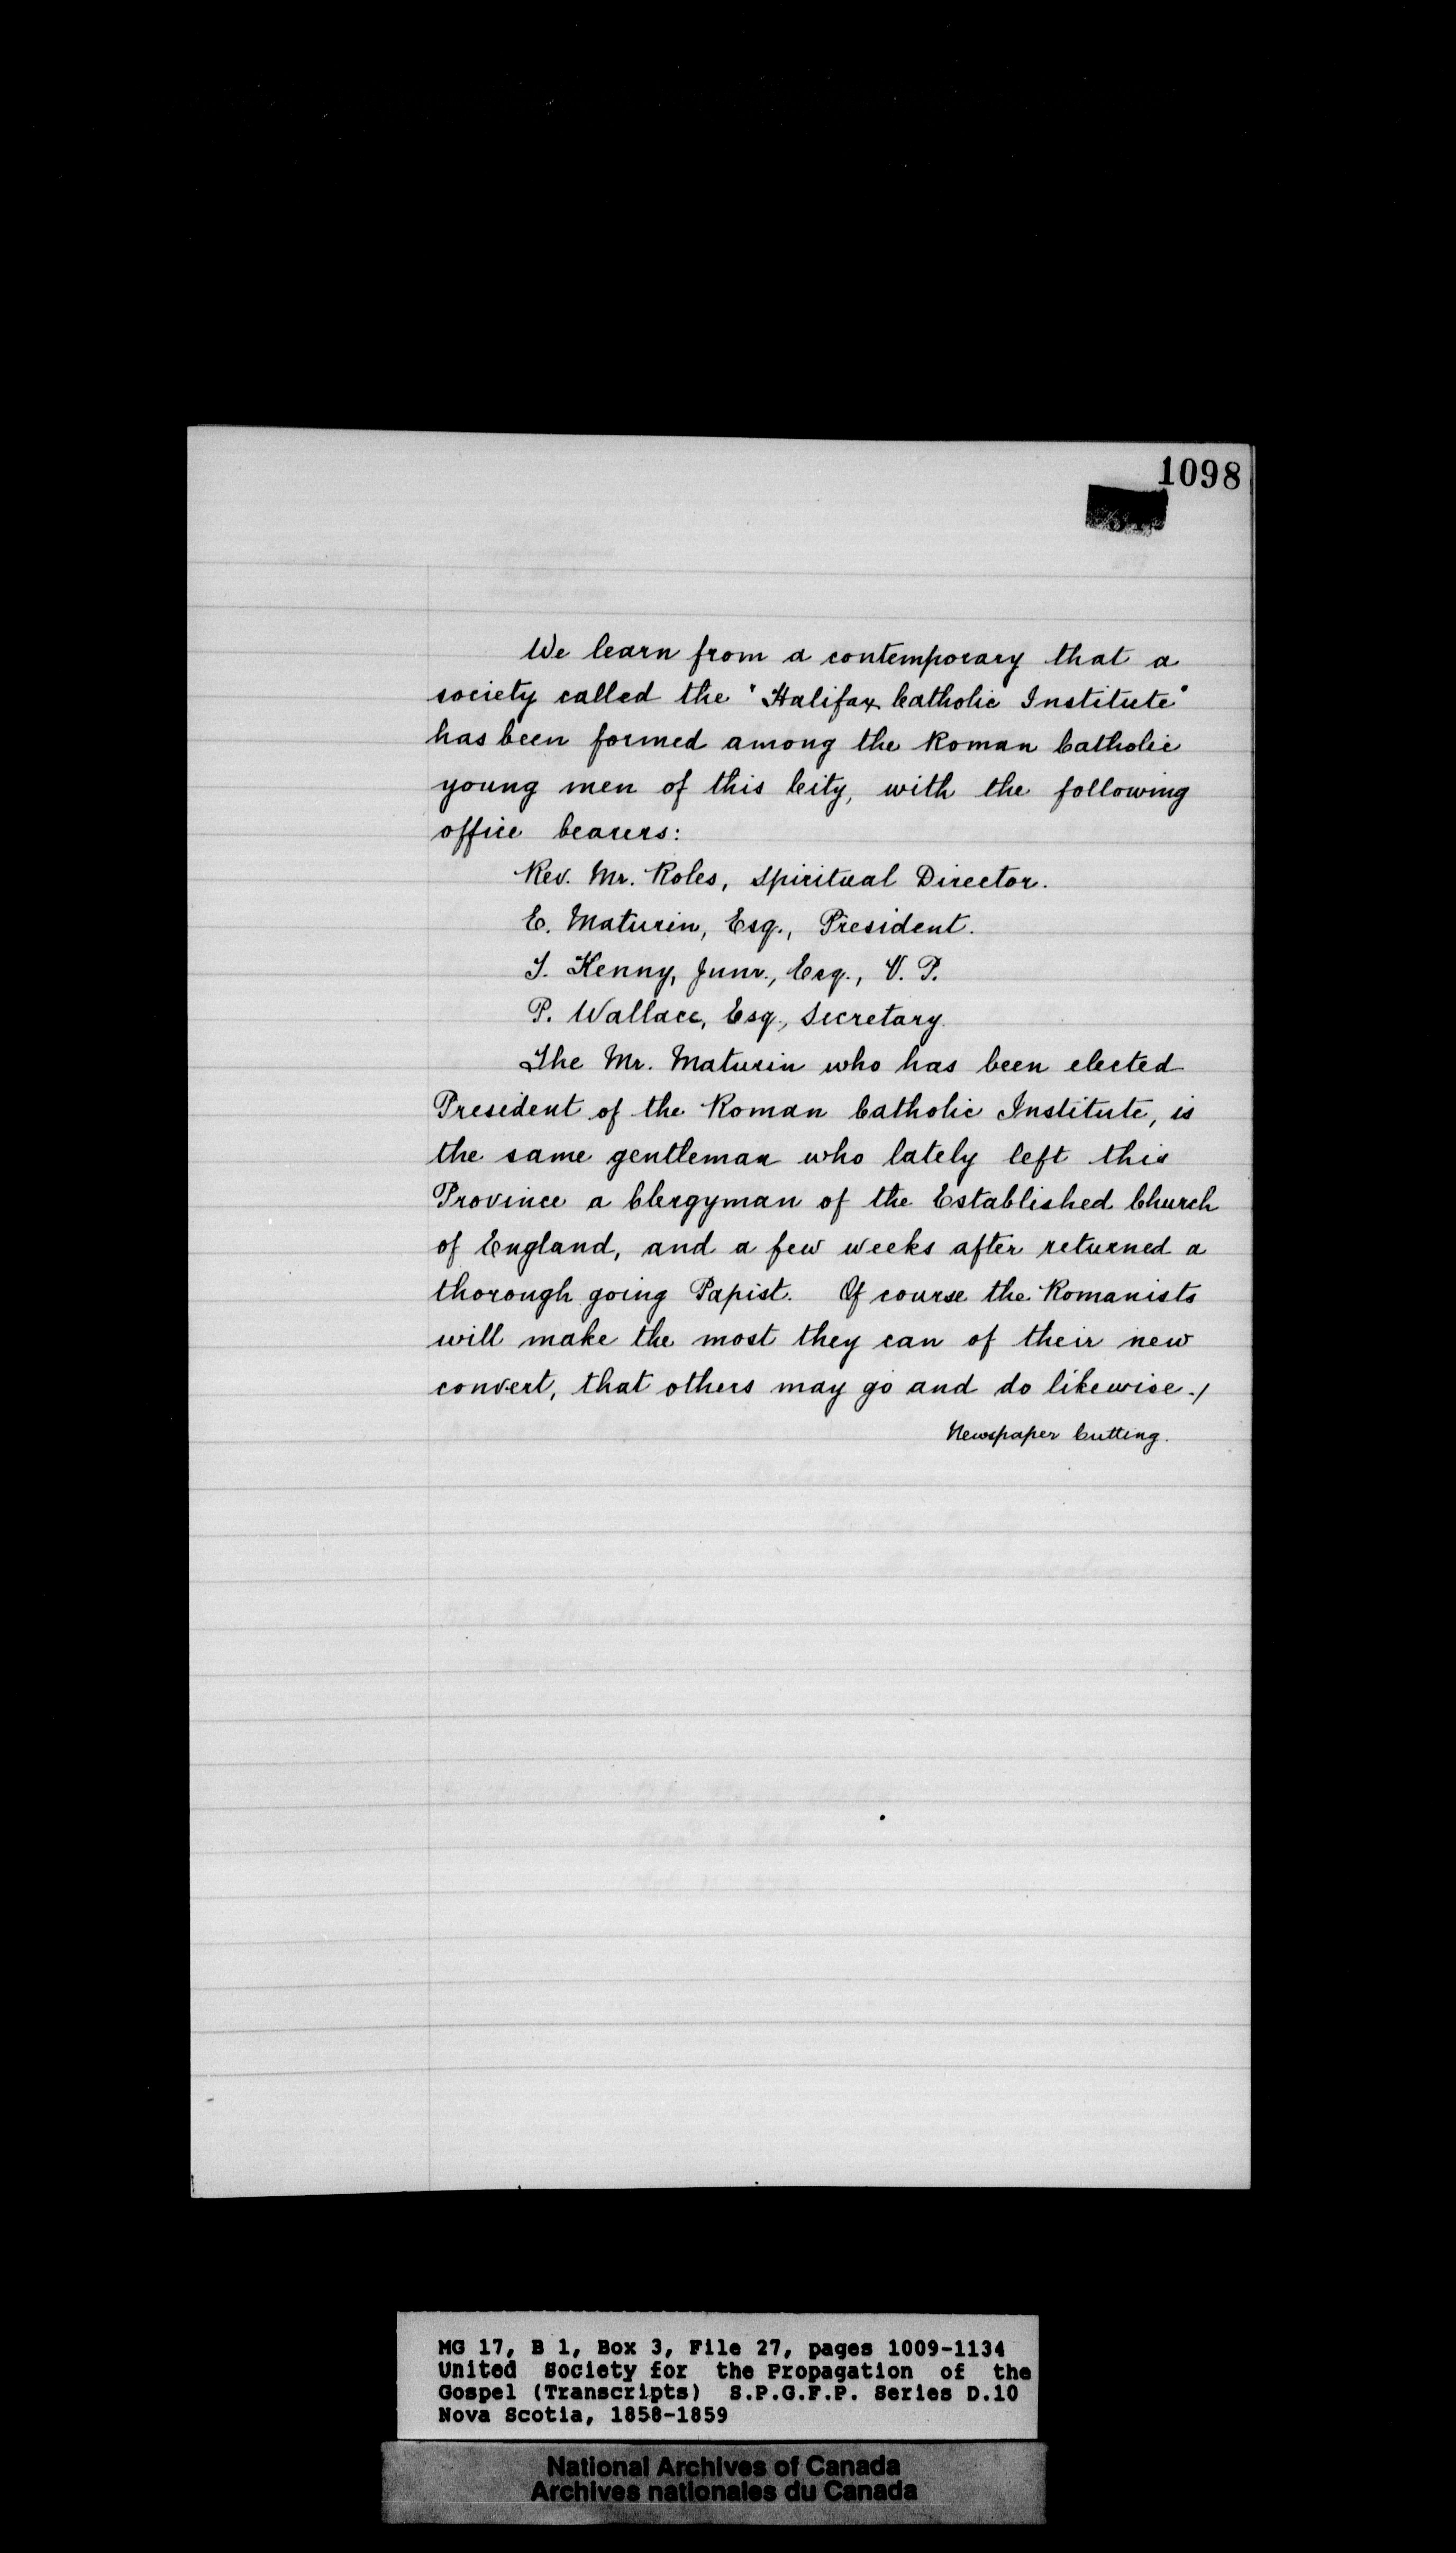 1098
We learn from a contemporary that a
society called the "Halifax Catholic Institute"
has been formed among the Roman Catholic
young men of this City, with the following
office bearers:
Rev. Mr. Roles, Spiritual Director.
E. Maturin, Esq., President.
T. Kenny, Junr., Esq., V. P.
P. Wallace, Esq., Secretary.
The Mr. Maturin who has been elected
President of the Roman Catholic Institute, is
the same gentleman who lately left this
Province a Clergyman of the Established Church
of England, and a few weeks after returned a
thorough going Papist. Of course the Romanists
will make the most they can of their new
convert, that others may go and do likewise./
Newspaper Cutting.
MG 17, B 1, Box 3, File 27, pages 1009-1134
United Society for the Propagation of the
Gospel (Transcripts) S.P.G.F.P. Series D.10
Nova Scotia, 1858-1859
National Archives of Canada
Archives nationales du Canada